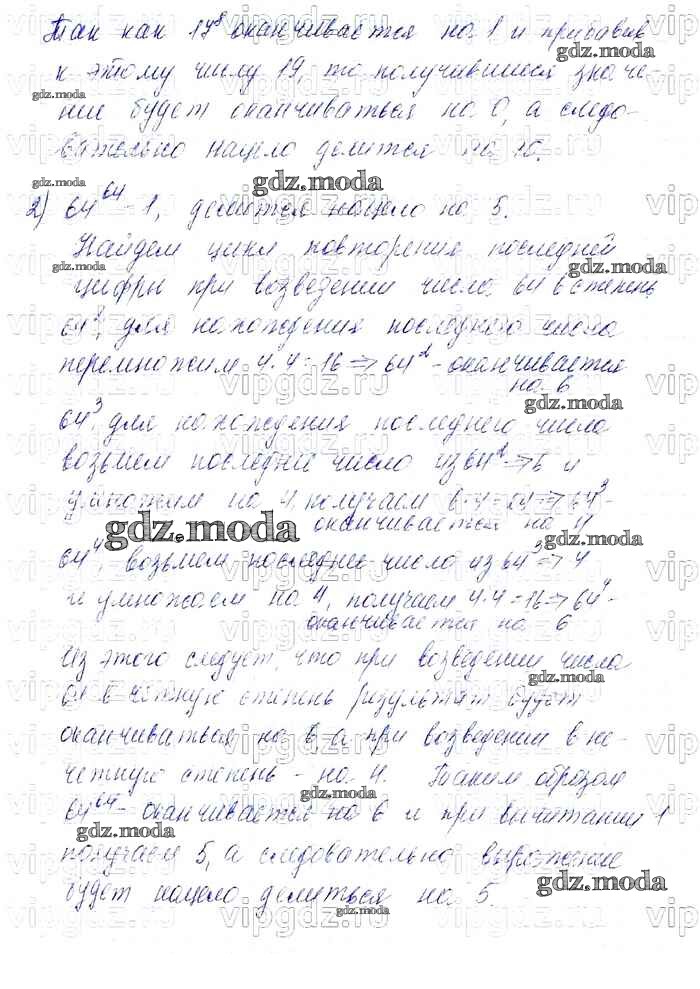 Так как 17⁸ оканчивается на 1 и прибавив
к этому числу 19, то получившиеся значе-
ние будет оканчиваться на 0, а следо-
вательно нацело делится на 10.
2) 64⁶⁴ - 1, делится нацело на 5.
Найдем цикл повторения последней
цифры при возведении числа 64 в степень
64², для нахождения последнего числа
перемножим 4·4=16 => 64² - оканчивается
на 6
64³, для нахождения последнего числа
возьмем последнее число из 64² => 6 и
умножим на 4, получаем 6·4=24 => 64³-
оканчивается на 4
64⁴, возьмем последнее число из 64³ => 4
и умножаем на 4, получаем 4·4=16 => 64⁴-
оканчивается на 6
Из этого следует, что при возведении числа
64 в четную степень результат будет
оканчиваться на 6, а при возведении в не-
четную степень - на 4. Таким образом
64⁶⁴ - оканчивается на 6 и при вычитании 1
получаем 5, а следовательно выражение
будет нацело делиться на 5.
gdz.moda
vipgdz.ru